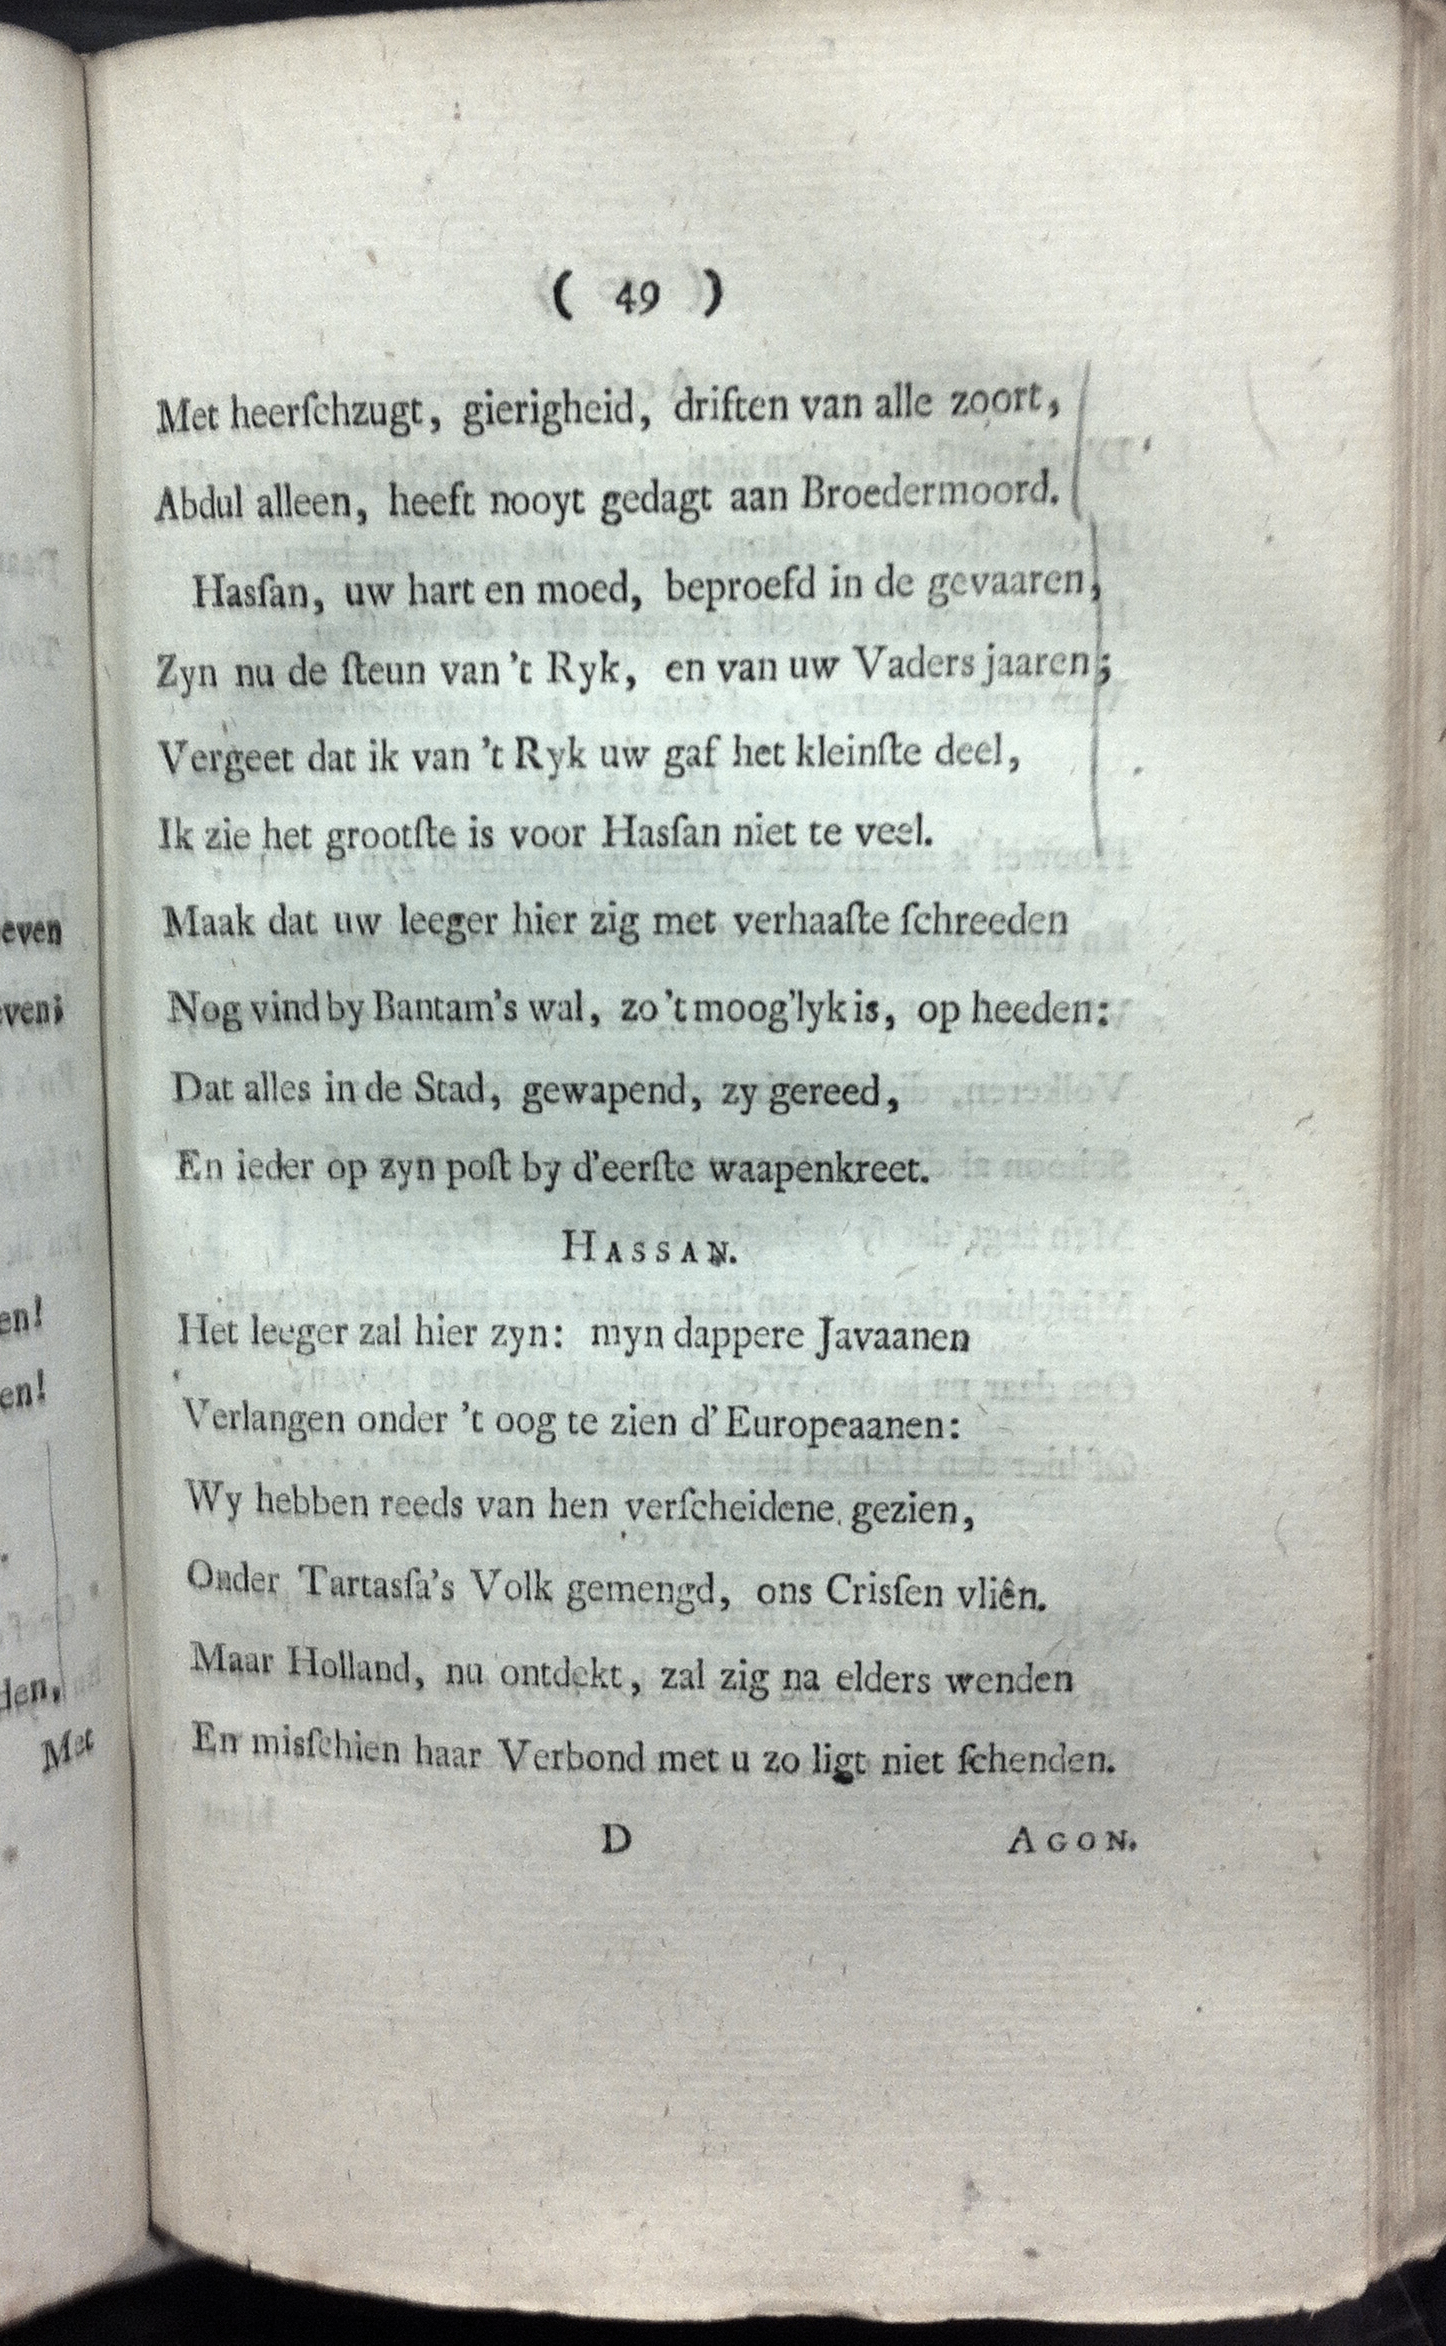 ( 49 )
Met heerſchzugt, gierigheid, driften van alle zoort,
Abdul alleen, heeft nooyt gedagt aan Broedermoord.
Hasſan, uw hart en moed, beproefd in de gevaaren,
Zyn nu de ſteun van 't Ryk, en van uw Vaders jaaren;
Vergeet dat ik van 't Ryk uw gaf het kleinſte deel,
Ik zie het grootſte is voor Hasſan niet te veel.
Maak dat uw leeger hier zig met verhaaſte ſchreeden
Nog vind by Bantam's wal, zo 't moog'lyk is, op heeden:
Dat alles in de Stad, gewapend, zy gereed,
En ieder op zyn poſt by d'eerſte waapenkreet.
HASSAN.
Het leeger zal hier zyn: myn dappere Javaanen
Verlangen onder 't oog te zien d'Europeaanen:
Wy hebben reeds van hen verſcheidene gezien,
Onder Tartasſa's Volk gemengd, ons Crisſen vliên.
Maar Holland, nu ontdekt, zal zig na elders wenden
En misſchien haar Verbond met u zo ligt niet ſchenden.
D AGON.
even
even;
en!
en!
den,
Met